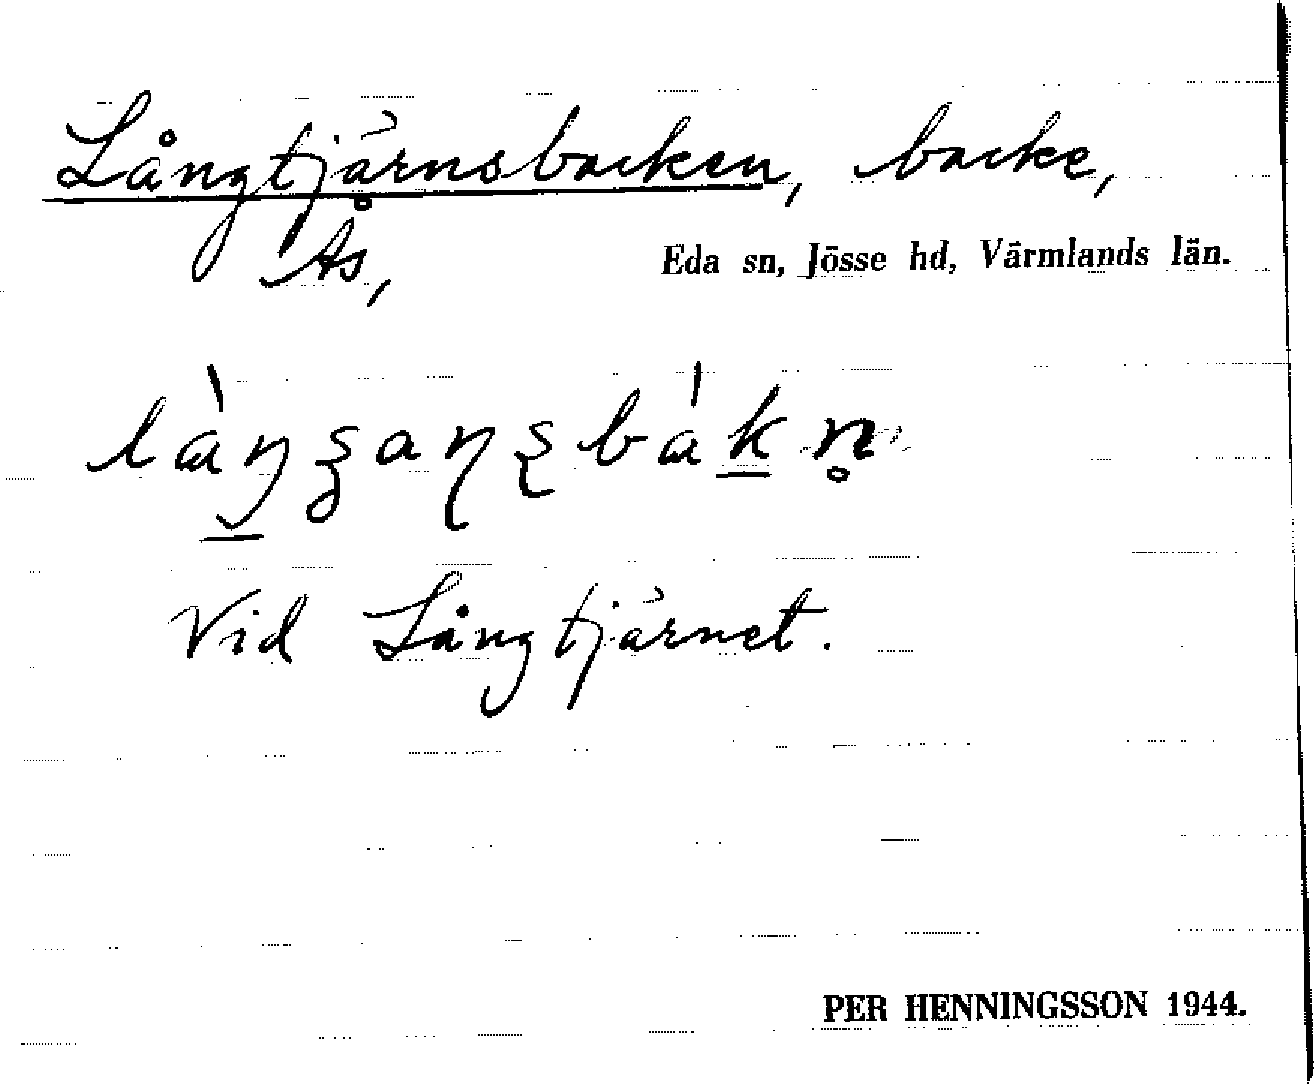 Långtjärnsbacken, backe,
Ås,
Eda sn, Jösse hd, Värmlands län.
Vid Långtjärnet.
PER HENNINGSSON 1944.